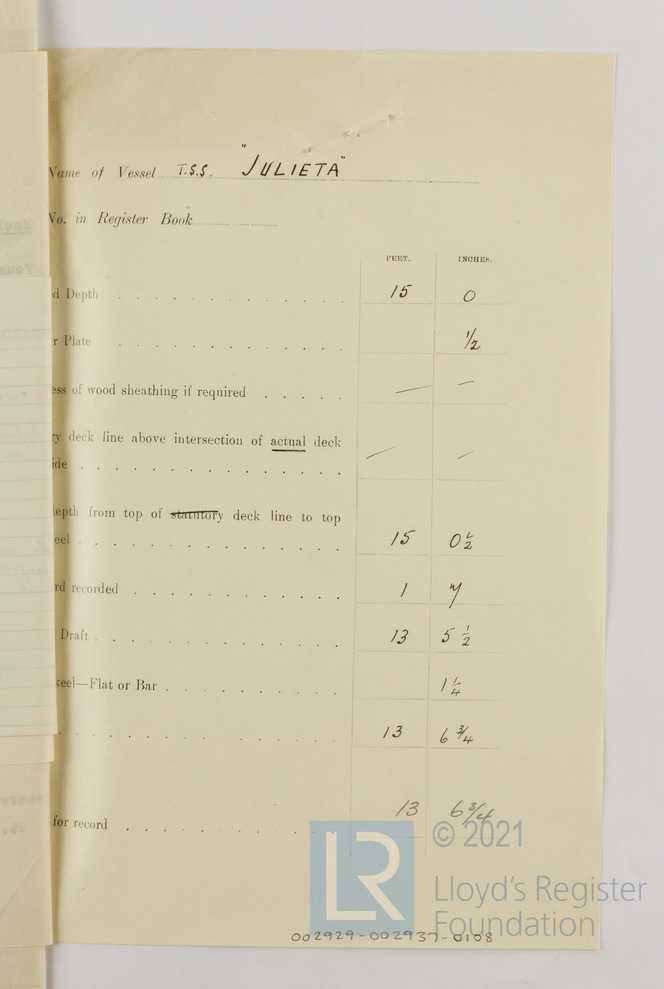 Name of Vessel T.S.S. "JULIETA"
No. in Register Book
FEET. INCHES.
d Depth 15 0
r Plate ½
ess of wood sheathing if required — —
ry deck line above intersection of actual deck
ide — —
depth from top of statutory deck line to top
eel 15 0½
rd recorded 1 7
Draft 13 5½
keel—Flat or Bar 1¼
13 6¾
for record 13 6¾
LR
© 2021
Lloyd's Register
Foundation
002929-002937-0108